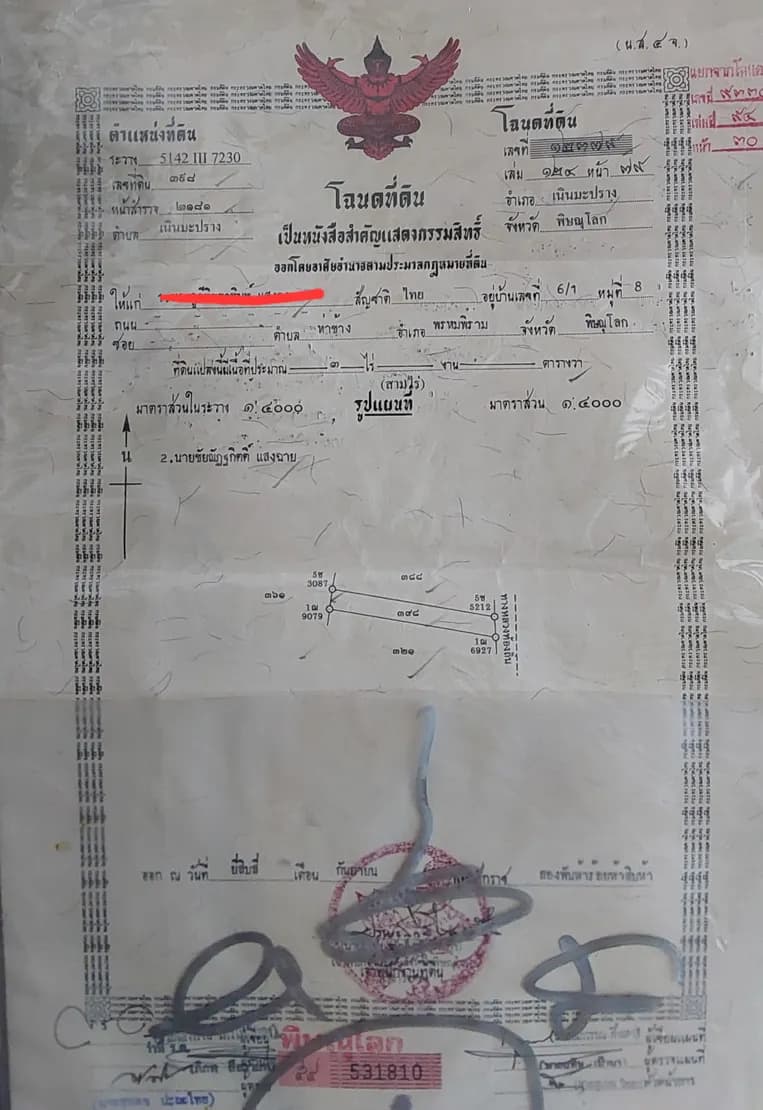 (น.ส.๔ จ.)
แยกจากโฉนด
เลขที่ ๙๓๓๐
๙๔
หน้า ๓๐
ตำแหน่งที่ดิน
ระวาง 5142 III 7230
เลขที่ดิน ๓๙๘
หน้าสำรวจ ๒๑๘๑
ตำบล เนินมะปราง
โฉนดที่ดิน
เลขที่ ๑๒๓๗๙
เล่ม ๑๒๔ หน้า ๗๙
อำเภอ เนินมะปราง
จังหวัด พิษณุโลก
โฉนดที่ดิน
เป็นหนังสือสำคัญแสดงกรรมสิทธิ์
ออกโดยอาศัยอำนาจตามประมวลกฎหมายที่ดิน
ให้แก่ สัญชาติ ไทย อยู่บ้านเลขที่ 6/1 หมู่ที่ 8
ถนน
ซอย ตำบล ท่าช้าง อำเภอ พรหมพิราม จังหวัด พิษณุโลก
ที่ดินแปลงนี้มีเนื้อที่ประมาณ ๓ ไร่ งาน ตารางวา
(สามไร่)
มาตราส่วนในระวาง ๑:๔๐๐๐ รูปแผนที่ มาตราส่วน ๑:๔๐๐๐
น
2.นายชัยณัฏฐกิตติ์ แสงฉาย
5ช
3087
๓๘๘
๓๖๑
5ช
5212
1ฌ
9079
๓๙๘
ทางหลวงท้องถิ่น
๓๒๑
1ฌ
6927
ออก ณ วันที่ ยี่สิบสี่ เดือน กันยายน สองพันห้าร้อยห้าสิบห้า
เจ้าพนักงานที่ดิน
พิษณุโลก
531810
ผู้เขียนแผนที่
ผู้ตรวจแผนที่